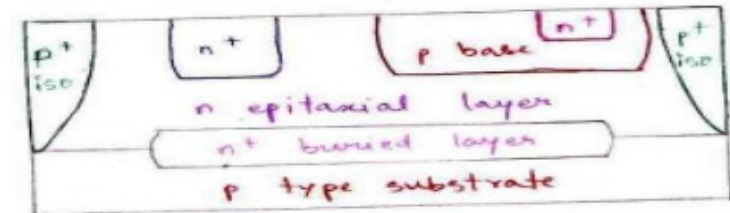 p+ iso
n+
p base
n+
p+ iso
n epitaxial layer
n+ buried layer
p type substrate